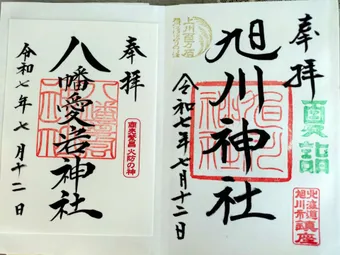 奉拝
夏詣
旭川神社
令和七年七月十二日
上川百万石
北海道
旭川市
鎮座
奉拝
八幡愛宕神社
商売繁昌 火防の神
令和七年七月十二日